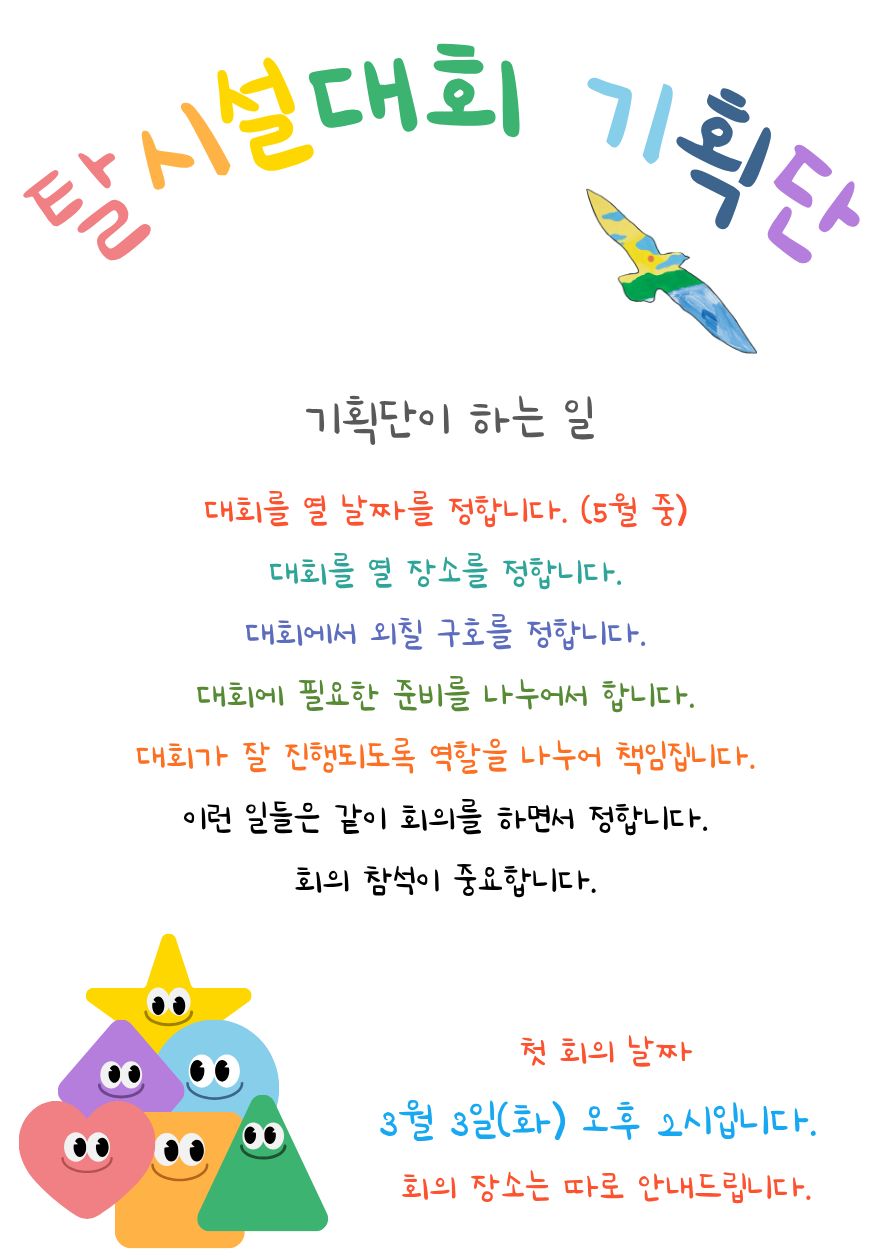 탈시설대회 기획단
기획단이 하는 일
대회를 열 날짜를 정합니다. (5월 중)
대회를 열 장소를 정합니다.
대회에서 외칠 구호를 정합니다.
대회에 필요한 준비를 나누어서 합니다.
대회가 잘 진행되도록 역할을 나누어 책임집니다.
이런 일들은 같이 회의를 하면서 정합니다.
회의 참석이 중요합니다.
첫 회의 날짜
3월 3일(화) 오후 2시입니다.
회의 장소는 따로 안내드립니다.